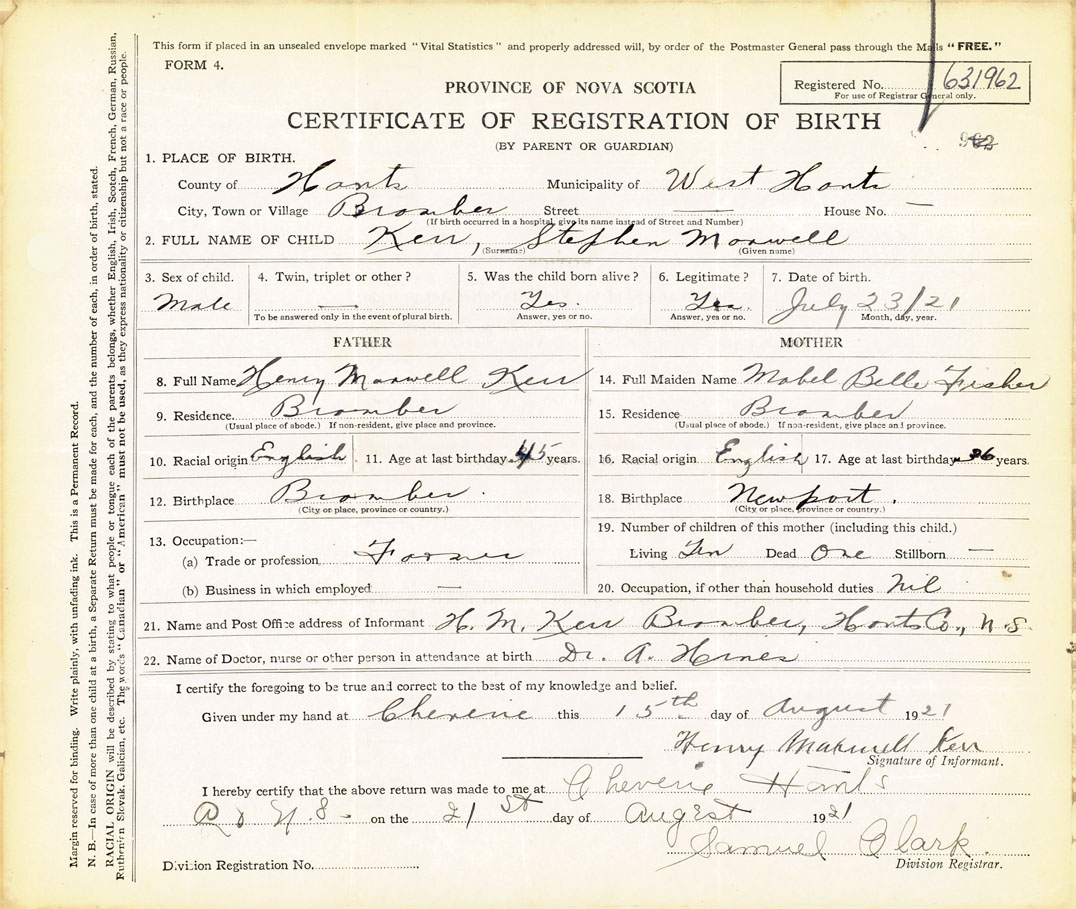 This form if placed in an unsealed envelope marked "Vital Statistics" and properly addressed will, by order of the Postmaster General pass through the Mails "FREE."
FORM 4.
Registered No. 631962
For use of Registrar General only.
PROVINCE OF NOVA SCOTIA
CERTIFICATE OF REGISTRATION OF BIRTH
(BY PARENT OR GUARDIAN)
1. PLACE OF BIRTH.
County of Hants Municipality of West Hants
City, Town or Village Bramber Street — House No. —
(If birth occurred in a hospital, give its name instead of Street and Number)
2. FULL NAME OF CHILD Kerr, Stephen Maxwell
(Surname) (Given name)
3. Sex of child. 4. Twin, triplet or other? 5. Was the child born alive? 6. Legitimate? 7. Date of birth.
Male — Yes. Yes. July 23/21
To be answered only in the event of plural birth. Answer, yes or no. Answer, yes or no. Month, day, year.
FATHER MOTHER
8. Full Name Henry Maxwell Kerr 14. Full Maiden Name Mabel Belle Fisher
9. Residence Bramber 15. Residence Bramber
(Usual place of abode.) If non-resident, give place and province. (Usual place of abode.) If non-resident, give place and province.
10. Racial origin English 11. Age at last birthday 45 years. 16. Racial origin English 17. Age at last birthday 36 years
12. Birthplace Bramber. 18. Birthplace Newport.
(City or place, province or country.) (City or place, province or country.)
13. Occupation:— 19. Number of children of this mother (including this child.)
(a) Trade or profession Farmer Living Ten Dead One Stillborn —
(b) Business in which employed — 20. Occupation, if other than household duties Nil
21. Name and Post Office address of Informant H. M. Kerr Bramber, Hants Co., N.S.
22. Name of Doctor, nurse or other person in attendance at birth Dr. A. Hines
I certify the foregoing to be true and correct to the best of my knowledge and belief.
Given under my hand at Cheverie this 15th day of August 1921
Henry Maxwell Kerr
Signature of Informant.
I hereby certify that the above return was made to me at Cheverie Hants
N.S. on the 21st day of August 1921
Samuel Clark
Division Registrar.
Division Registration No.
Margin reserved for binding. Write plainly, with unfading ink. This is a Permanent Record.
N. B.—In case of more than one child at a birth, a Separate Return must be made for each, and the number of each, in order of birth, stated.
RACIAL ORIGIN will be described by stating to what people or tongue each of the parents belongs, whether English, Irish, Scotch, French, German, Russian,
Ruthenian Slovak, Galician, etc. The words "Canadian" or "American" must not be used, as they express nationality or citizenship but not a race or people.